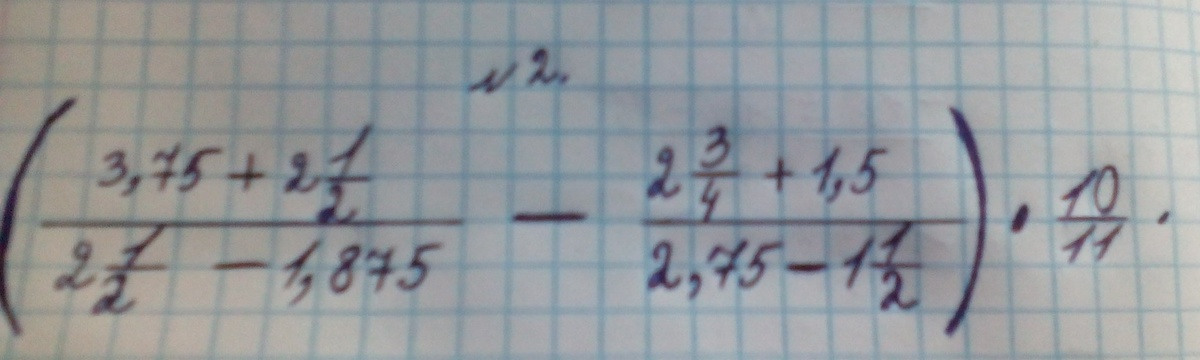 №2.
(3,75 + 2 1/2 / 2 1/2 - 1,875 - 2 3/4 + 1,5 / 2,75 - 1 1/2) · 10/11.